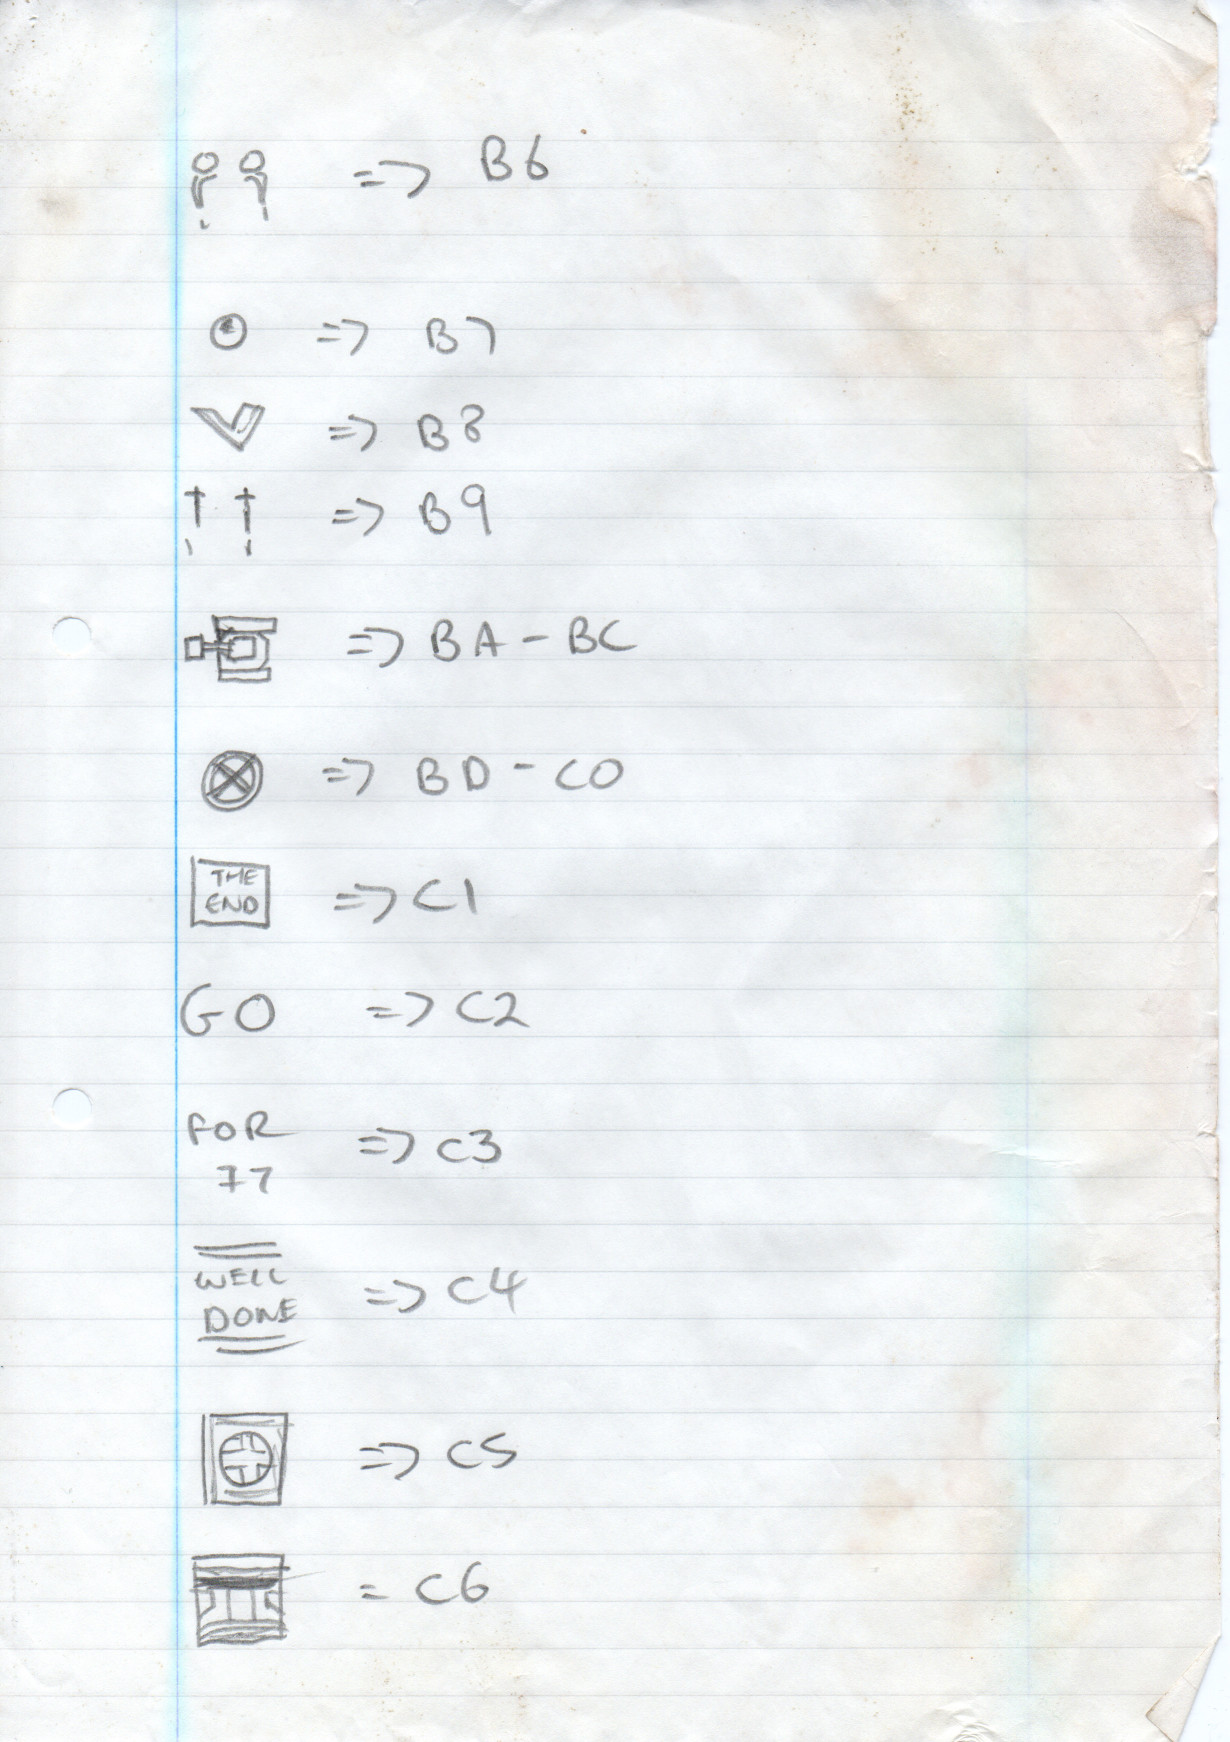 => B6
=> B7
=> B8
=> B9
=> BA - BC
=> BD - C0
THE
END => C1
GO => C2
FOR
77 => C3
WELL
DONE => C4
=> C5
= C6